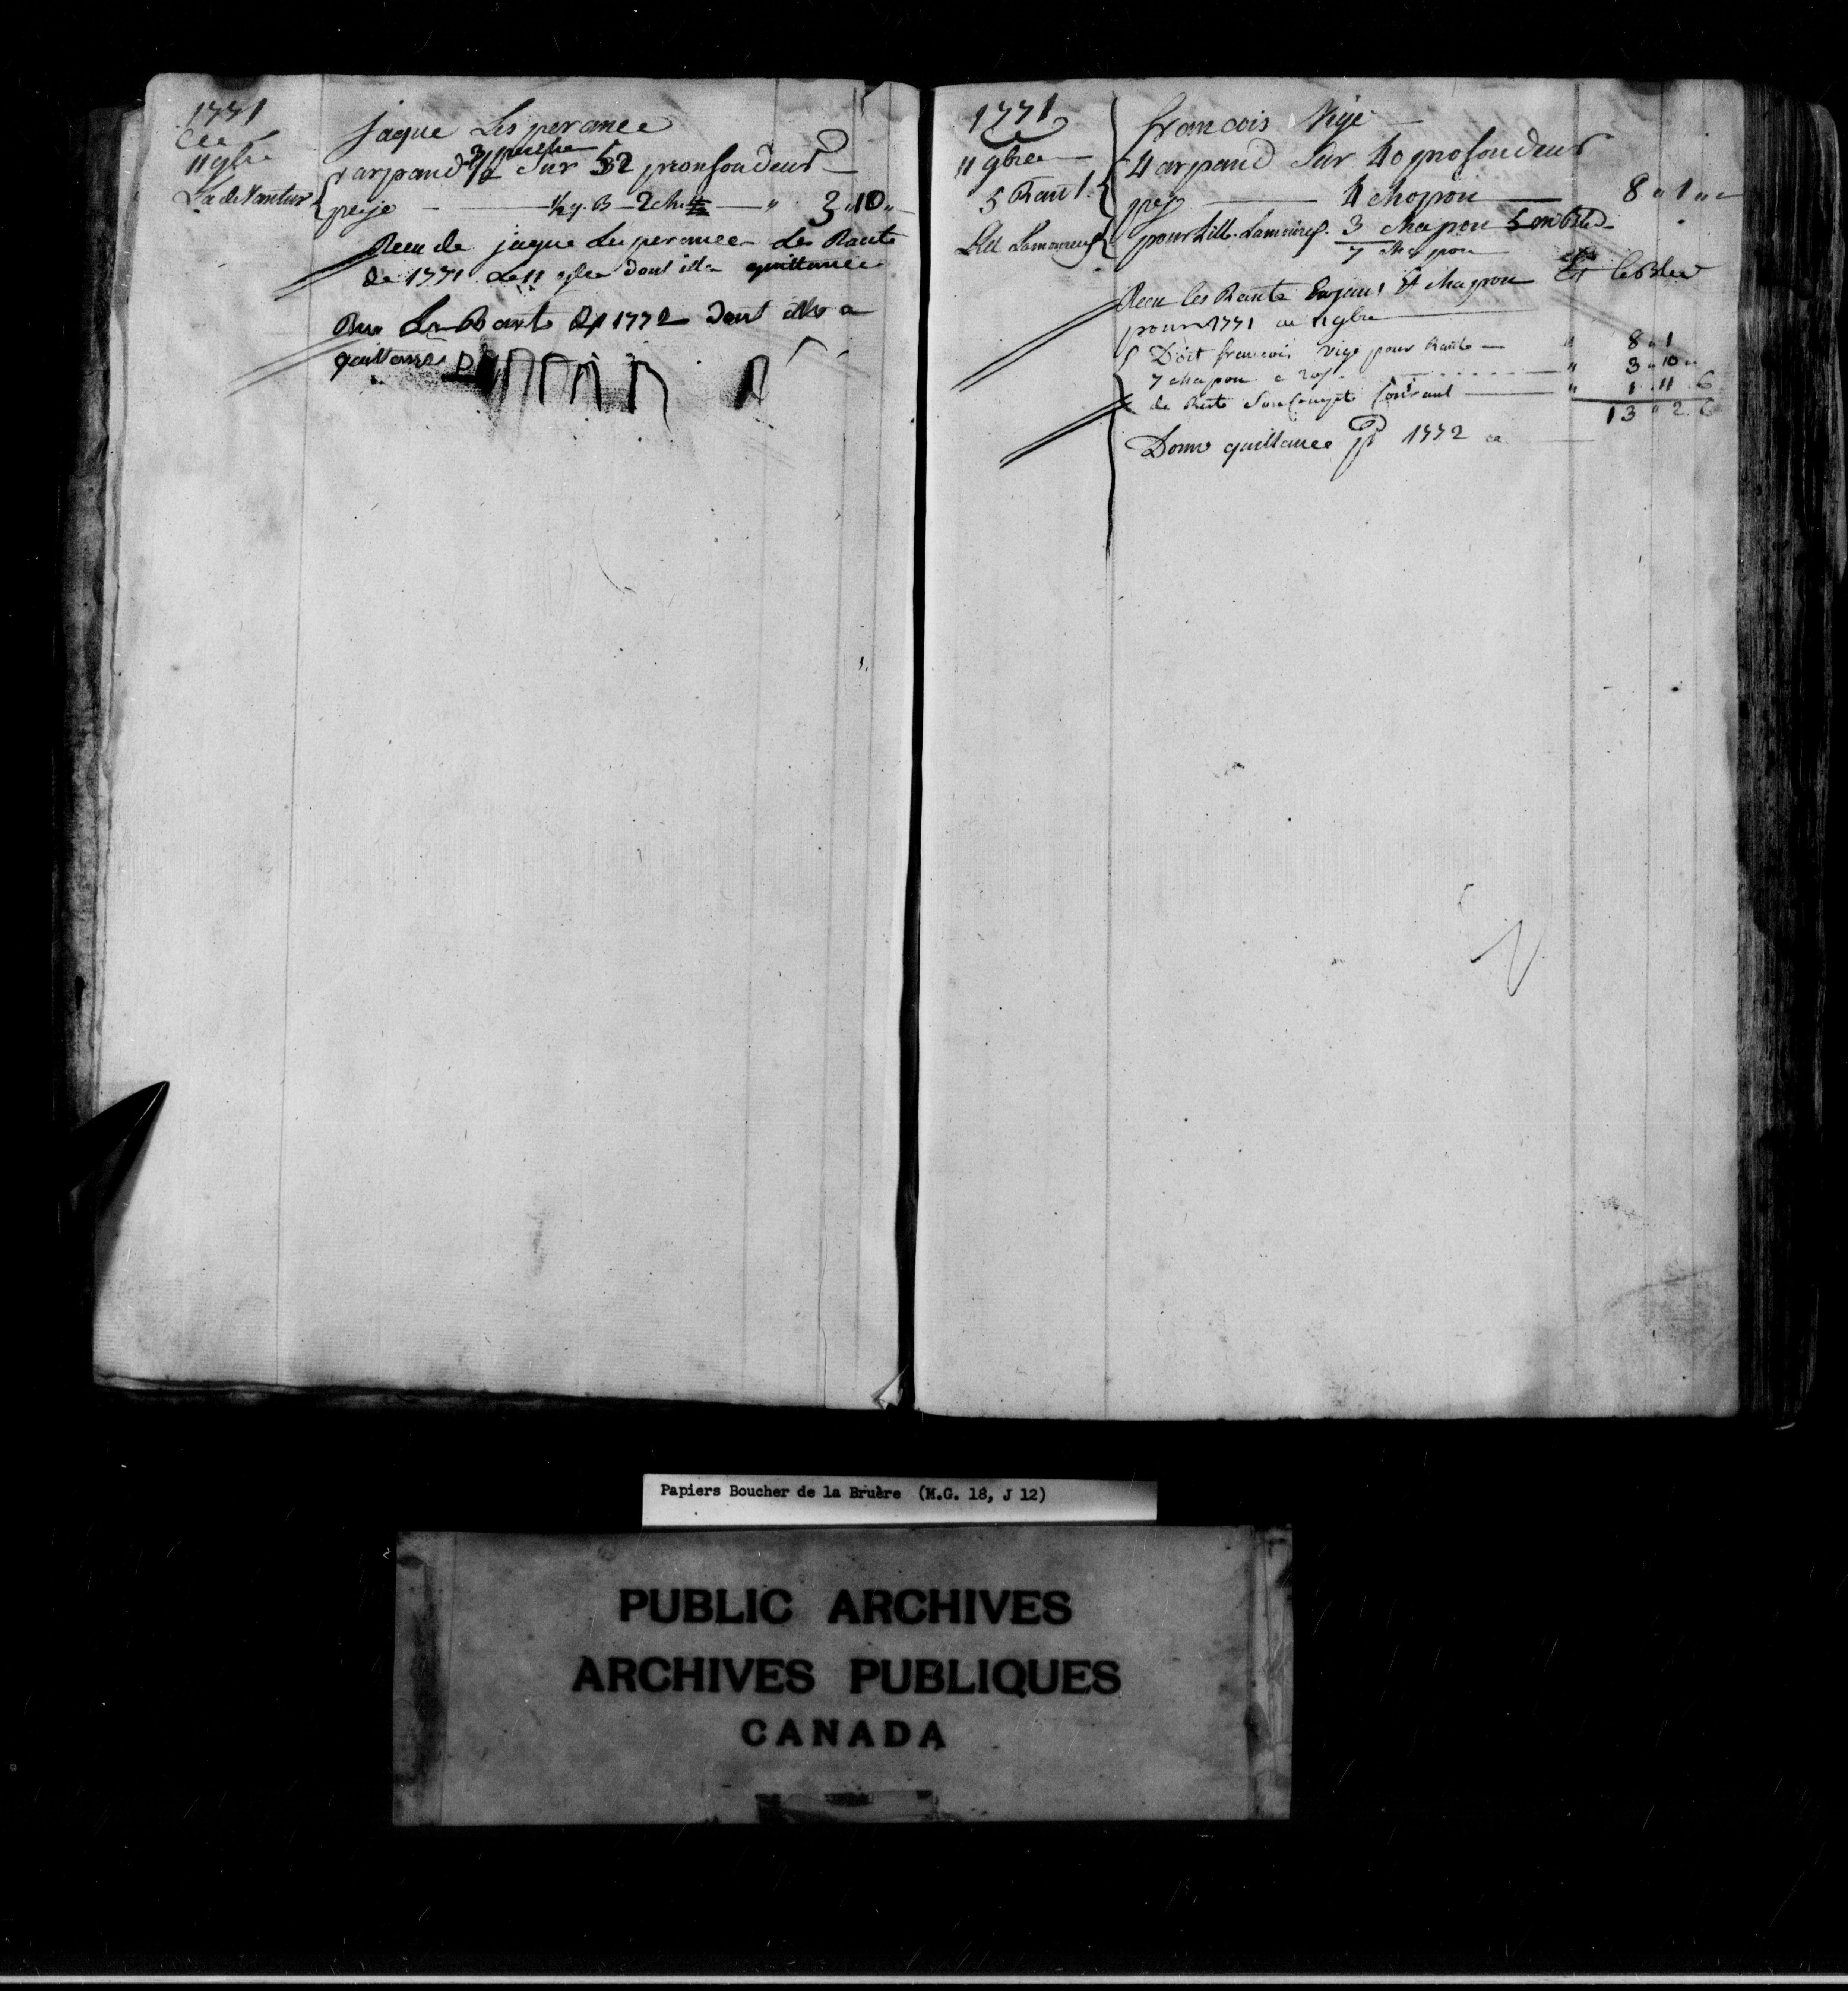 1771
Ce
11 9bre
La de Vantur
jaque Lesperance
3 perche
1 arpand 1/2 sur 32 pronfondeur
peye ½ q. B 2 ch " 3 " 10 "
Recu de jaque Lesperance Les Rante
de 1771 Le 11 9bre dont il a quittance
Reru Les Rante de 1772 dont elle a
quittance
1771
Ce
11 9bre
5 Rant
Lill Lamoureux
francois Vigé
4 arpand sur 40 profondeur
peye 4 chapon 8 " 1 "
pour Lille Lamoureux 3 chapon 5 en Bled
7 chapon
Recu les Rante Erjean 4 chapon et le Bled
pour 1771 ce 11 9bre
Doit francois vigé pour Rante " 8 " 1
7 chapon a 20s " 3 " 10 "
de Reste son compte Courant " 1 11 6
13 " 2 6
Donne quittance pr 1772 ce
Papiers Boucher de la Bruère (M.G. 18, J 12)
PUBLIC ARCHIVES
ARCHIVES PUBLIQUES
CANADA